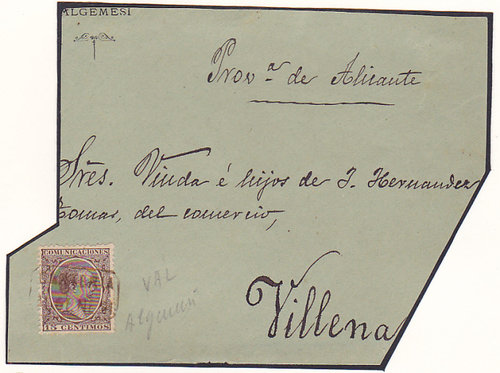 ALGEMESÍ
Provª de Alicante
Sres. Viuda é hijos de J. Hernandez
Tomas, del comercio,
COMUNICACIONES
VAL
Algemesí
Villena
15 CENTIMOS